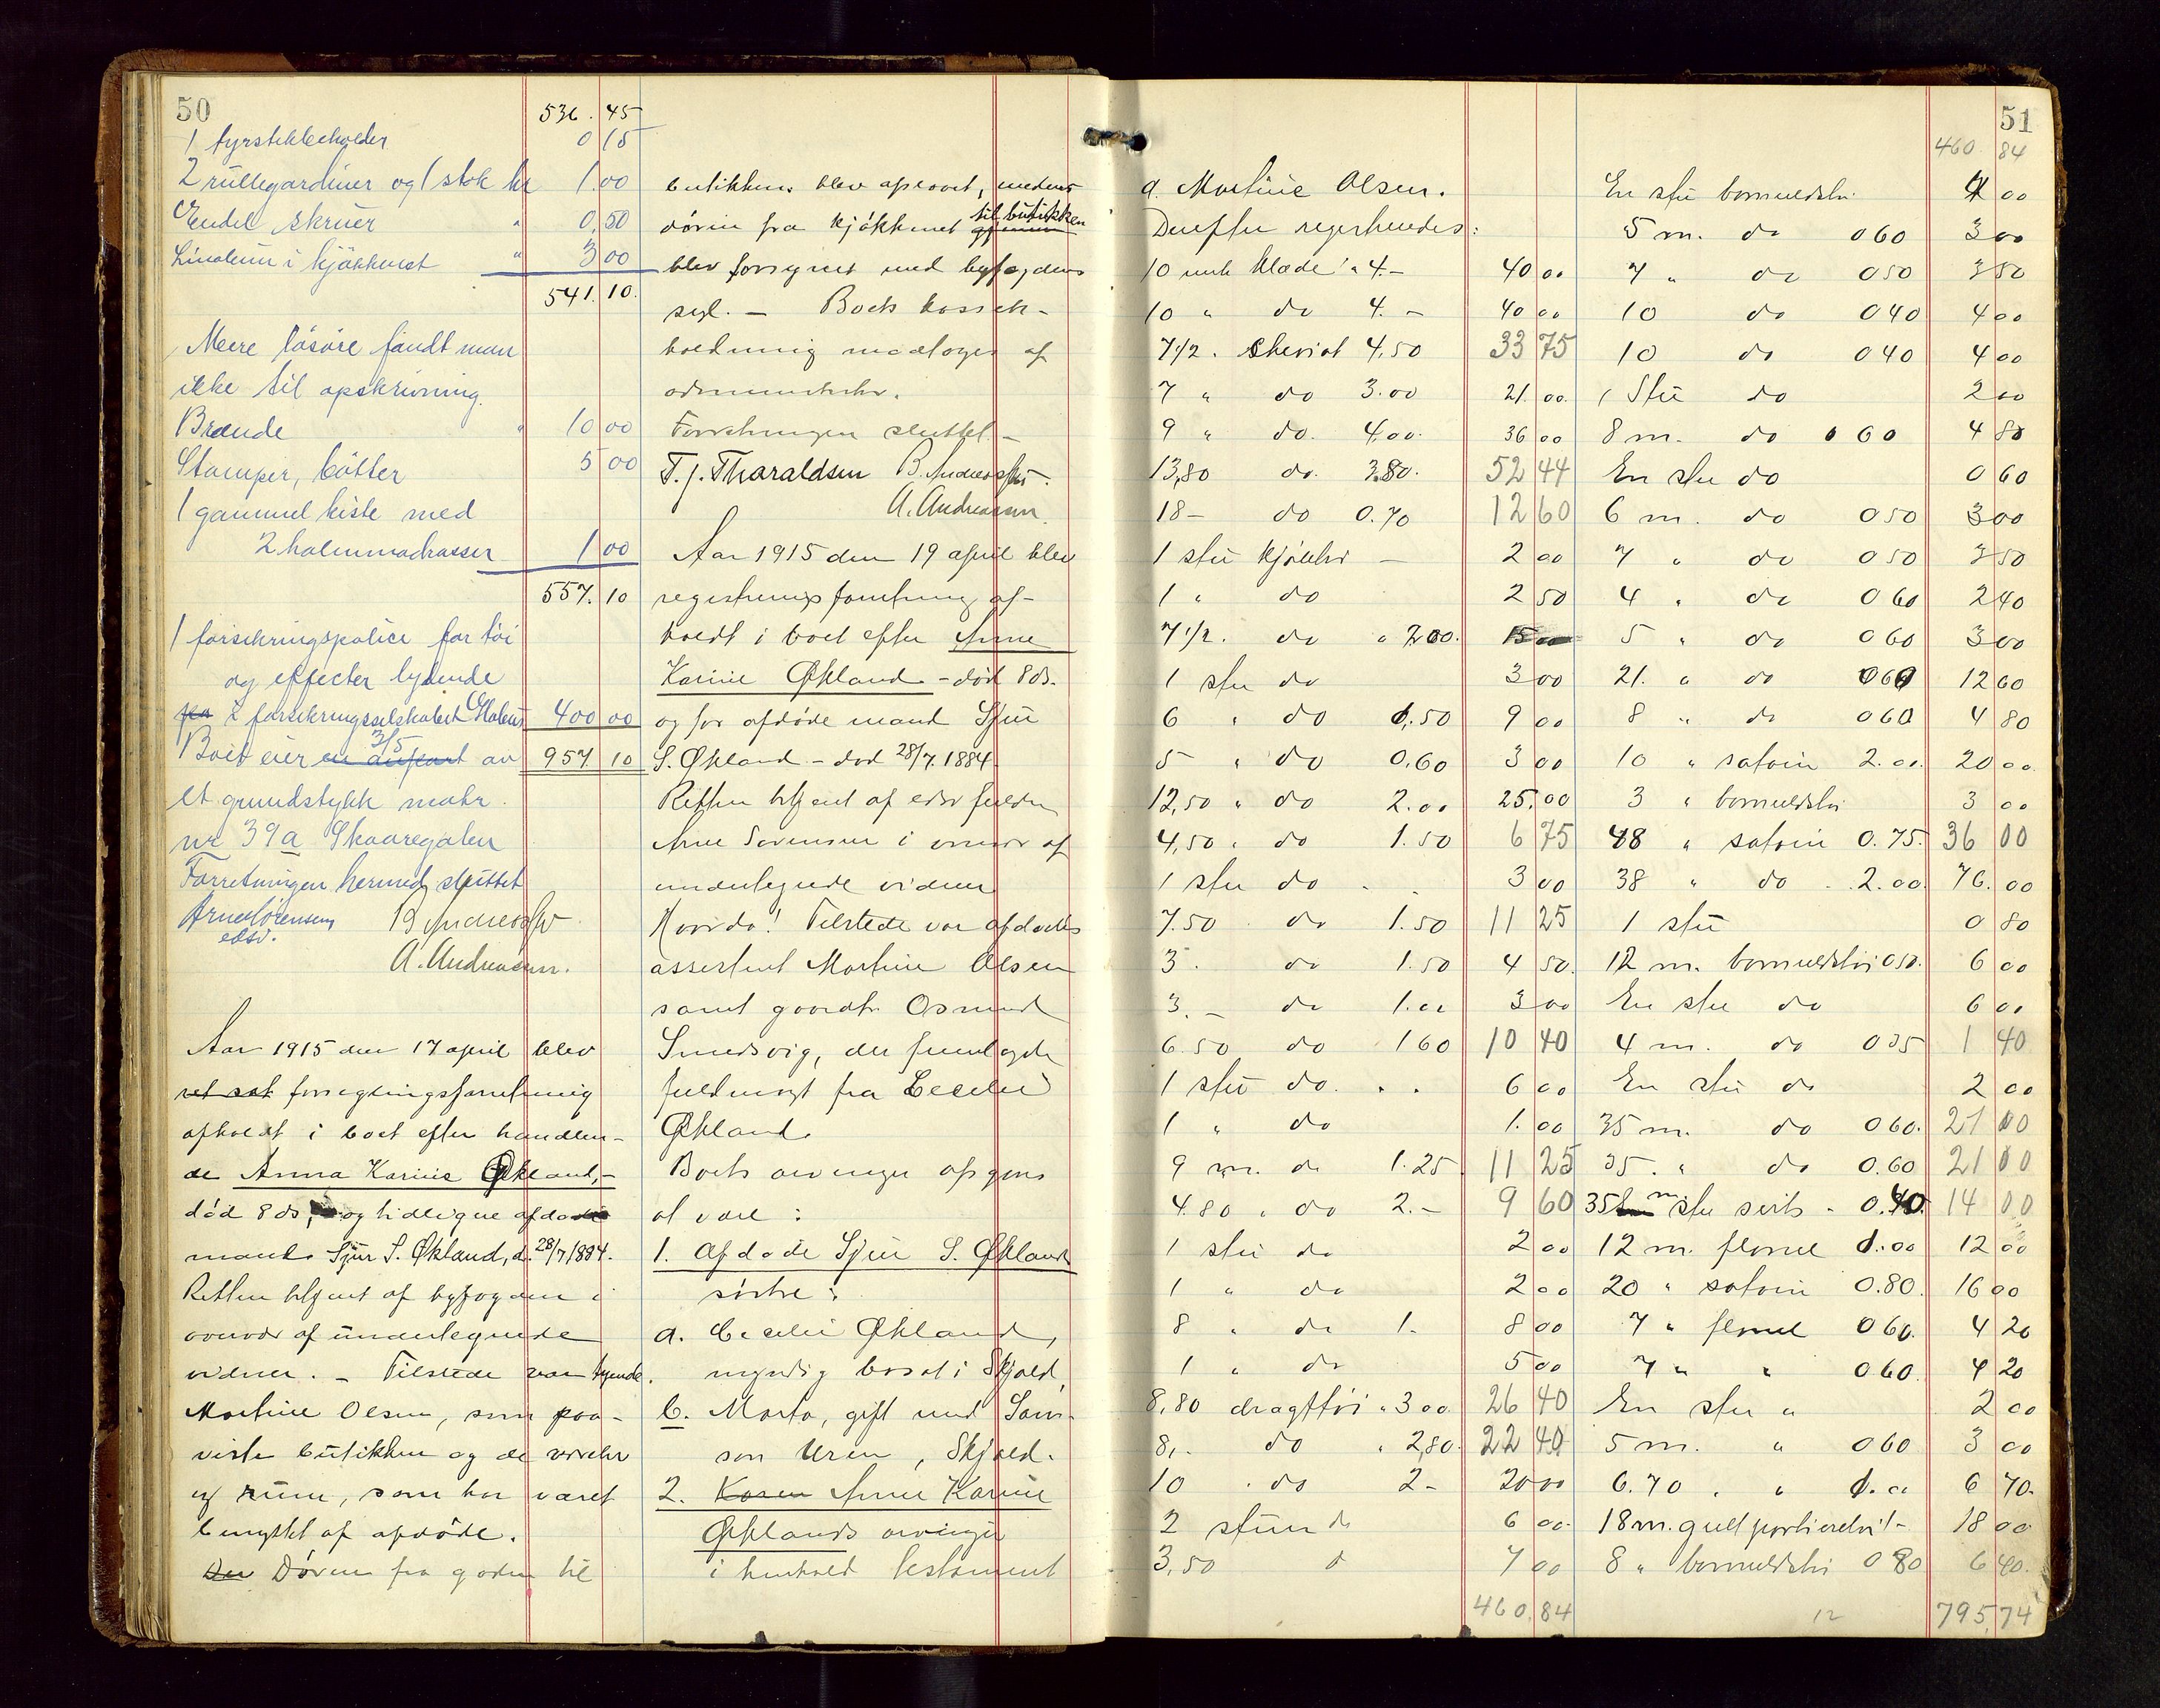 50
536. 45
1 fyrstikbeholder 0 15
2 rullegardiner og 1 stok kr 1 00
Endel skruer " 0,50
Linoleum i kjøkkenet " 3 00
541. 10.
Mere løsøre fandt man
ikke til opskrivning.
Brænde " 10 00
Stamper, bøtter 5 00
1 gammel kiste med
2 halmmadrasser 1 00
557. 10
1 forsikringspolice for tøi
og effecter lydende
paa i forsikringsselskabet 400 00
Boet eier en anpart 3/5 av 957 10
et grundstykke matr.
nr 39a Skaaregaten
Forretningen hermed sluttet
Arne Sørensen B Andreassen
edsv.
A. Andreassen.
Aar 1915 den 17 april blev
ret sat forseglingsforretning
afholdt i boet efter handlen-
de Anna Karine Økland,-
død 8 ds, og tidligere afdøde
mand Sjur S. Økland, d. 28/7 1884.
Retten betjent af byfogden i
overvær af undertegnede
vidner. - Tilstede var tyende
Martine Olsen, som paa-
viste butikken og de værelser
og rum, som har været
benyttet af afdøde.
Den Døren fra gaden til
butikken blev aflaaset, medens
døren fra kjøkkenet gjennem til butikken
blev forsynet med byfogdens
segl. - Boets kassebe-
holdning modtoges af
administrator.
Forretningen sluttet. -
T. J. Tharaldsen B. Andreassen.
A. Andreassen.
Aar 1915 den 19 april blev
registreringsforretning af-
holdt i boet efter Anne
Karine Økland - død 8 ds.
og før afdøde mand Sjur
S. Økland - død 28/7. 1884
Retten betjent af edsv fuldm
Arne Sørensen i overvær af
undertegnede vidner
Hvorda! Tilstede var afdødes
assistent Martine Olsen
samt gaardbr. Osmund
Smedsvig, der fremlagde
fuldmagt fra Cecelie
Økland.
Boets arvinger opgives
at være:
1. Afdøde Sjur S. Økland
søstre:
a. Cecelie Økland,
myndig bosat i Skjold,
b. Marta, gift med Sam-
son Uren, Skjold.
2. Karen Anne Karine
Øklands arvinger
i henhold testament
51
a. Martine Olsen.
Derefter registreredes:
10 mtr klæde " 4.- 40 00
10 " do 4.- 40 00
7 1/2 . Cheviot 4.50 33 75
7 " do 3.00 21. 00.
9 " do. 4.00. 36 00
13,80 do. 3.80. 52 44
18- do 0.70 12 60
1 stu kjoletøi - 2 00
1 " do 2 50
7 1/2. do " 2.00. 15 00
1 stu do 3 00
6 " do 1.50 9 00
5 " do 0.60 3 00
12,50 " do 2.00 25.00
4,50 " do 1.50 6 75
1 stu do 3 00
7.50 do 1.50 11 25
3 . do 1.50 4 50.
3. - do 1.00 3 00
6.50 do 1 60 10 40
1 stu do. 6 00
1 " do 1. 00
9 m. do 1.25 11 25
4.80 " do 2.- 9 60
1 stu do 2 00
1 " do 2 00
8 " do 1. 8 00
1 " do 5 00
8,80 dragttøi " 3 00. 26 40
8,. do " 2,80. 22 40
10 . do 2- 20 00
2 stuer do 6 00
3,50 d 7 00
460,84
460. 84
En stu bomuldstøi 4 00
5 m. do 0 60 3 00
7 " do 0 50 3 50
10 do 0 40 4 00
10 do 0 40 4 00
1 Stu do 2 00
8 m. do 0 60 4 80
En stu do 0 60
6 m. do 0 50 3 00
7 " do 0 50 3 50
4 " do 0 60 2 40
5 " do 0 60 3 00
21. " do 0 60 12 60
8 " do 0 60 4 80
10 " satoin 2.00. 20 00
3 " bomuldstøi 3 00
48 " satoin 0.75. 36 00
38 " do . 2.00. 76. 00
1 stu 0 80
12 m. bomuldstøi 0 50. 6 00
En stu do 6 00
4 m. do 0 35 1 40
En stu do 2 00
35 m. do 0 60. 21 00
35. " do 0.60 21 00
35 m stu sirts - 0.40. 14 00
12 m. flonel 1.00 12 00
20 " satoin 0.80. 16 00
7 " flonel 0 60. 4 20
7 " " 0 60. 4 20
En stu " 2 00
5 m. " 0 60 3 00
6.70 . " 1.00 6 70.
18 m. gult portieretøi 1- 18 00
8 " bomuldstøi 0 80 6 40.
12
795,74